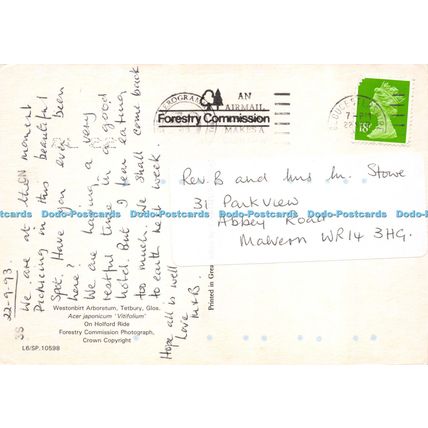 22-9-93
We are at this moment
Picnicing in this beautiful
Spot. Have you ever been
here?
We are having a very
restful time in a good
hotel. But I fear eating
too much. We shall come back
to earth next week.
Hope all is well
Love
M & B.
Westonbirt Arboretum, Tetbury, Glos.
Acer japonicum 'Vitifolium'
On Holford Ride
Forestry Commission Photograph,
Crown Copyright
L6/SP.10598
Printed in Great
AN
AIRMAIL
Forestry Commission
MAKES A
18
Rev. B and Mrs M. Stowe
31 Parkview
Abbey Road
Malvern WR14 3HG.
Dodo-Postcards Dodo-Postcards Dodo-Postcards Dodo-Postcards Dodo-Postcards